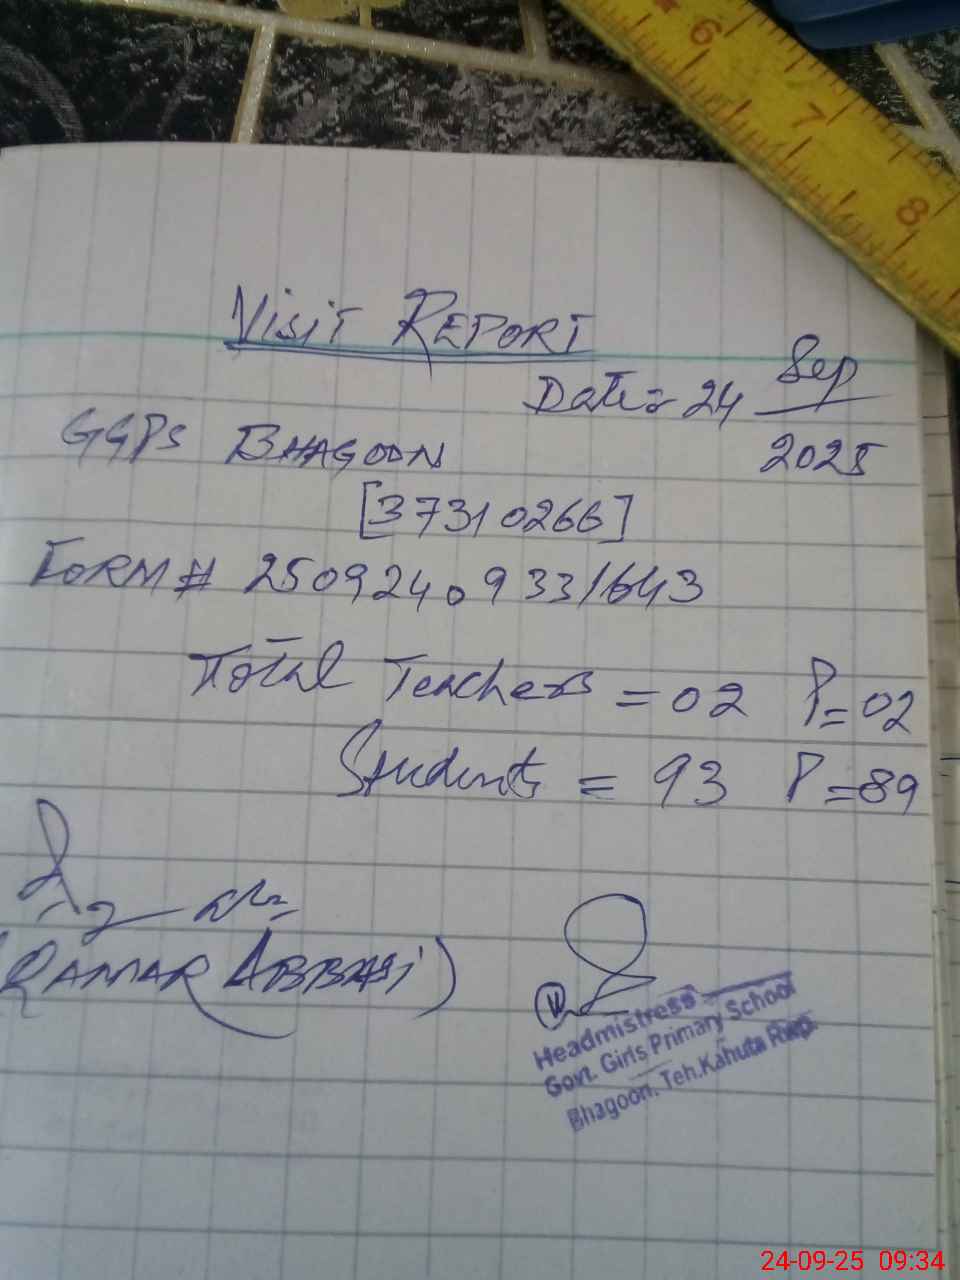 6
7
8
VISIT REPORT
Date = 24 Sep
2025
GGPS BHAGOON
[37310266]
FORM # 25092409331643
Total Teachers = 02 P = 02
Students = 93 P = 89
(QAMAR ABBASI)
Headmistress
Govt. Girls Primary School
Bhagoon. Teh. Kahuta Rwp.
24-09-25 09:34